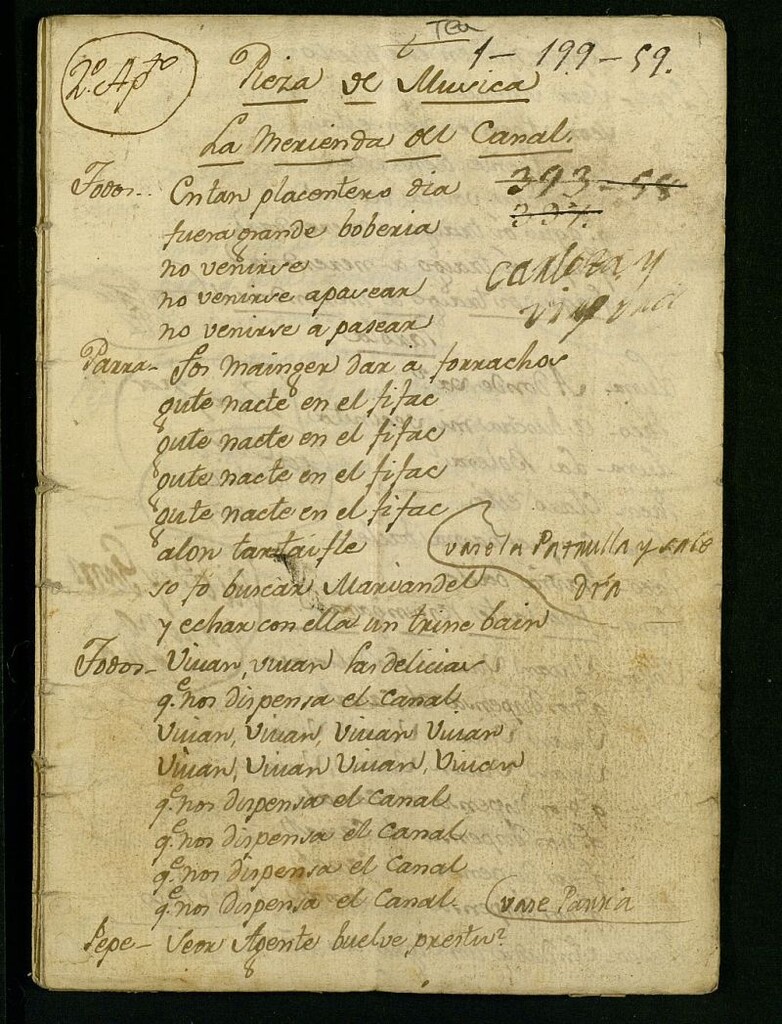 Tea
1-199-59.
2.º Ap.to
Pieza de Musica
La Merienda del Canal.
Todos.. En tan placentero dia
393-58
fuera grande boberia
no venirse
no venirse apasear
no venirse a pasear
Parra- Sos mainger dar a forrachos
gute nacte en el fifac
gute nacte en el fifac
gute nacte en el fifac
gute nacte en el fifac
alon tartaifle
(vase la Patrulla y sale
dra
so fo buscar Mariandel
y echar con ella un trine bain
Todos- Vivan, vivan las delicias
q.e nos dispensa el Canal
Vivan, Vivan, Vivan Vivan
Vivan, Vivan Vivan, Vivan
q.e nos dispensa el Canal
q.e nos dispensa el Canal
q.e nos dispensa el Canal
q.e nos dispensa el Canal. (vase Parra
Pepe- Seor Agente buelve presto?